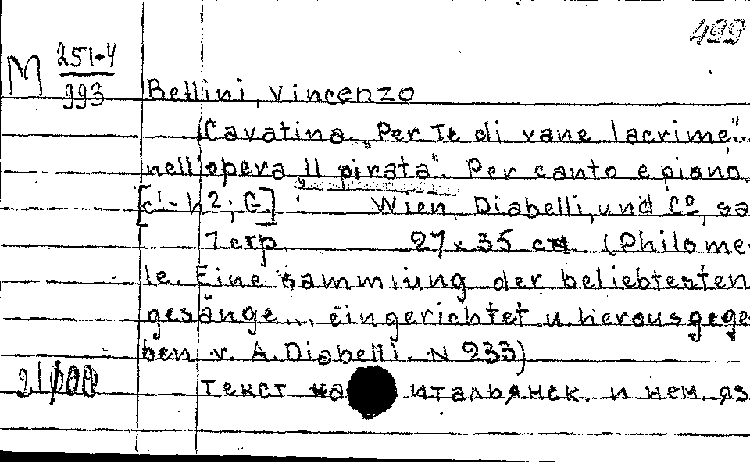 499
M 251-4
993
Bellini, Vincenzo
Cavatina „Per te di vane lacrime"
nell'opera „Il pirata". Per canto e piano
[c¹-h²; G] Wien, Diabelli, und Cº, sa
7 стр 27 x 35 см (Philome-
le. Eine Sammlung der beliebtesten
gesänge... eingerichtet u herausgege-
ben v. A. Diabelli. N 233)
21/00 Текст на итальянск. и нем. яз